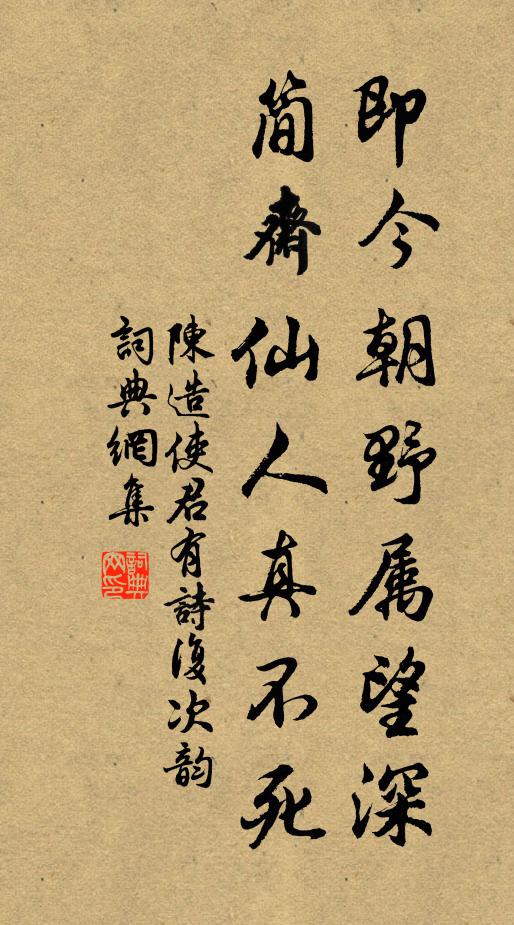 即今朝野属望深
简齋仙人真不死
陳造使君有詩復次韵
詞典網集
詞典网印